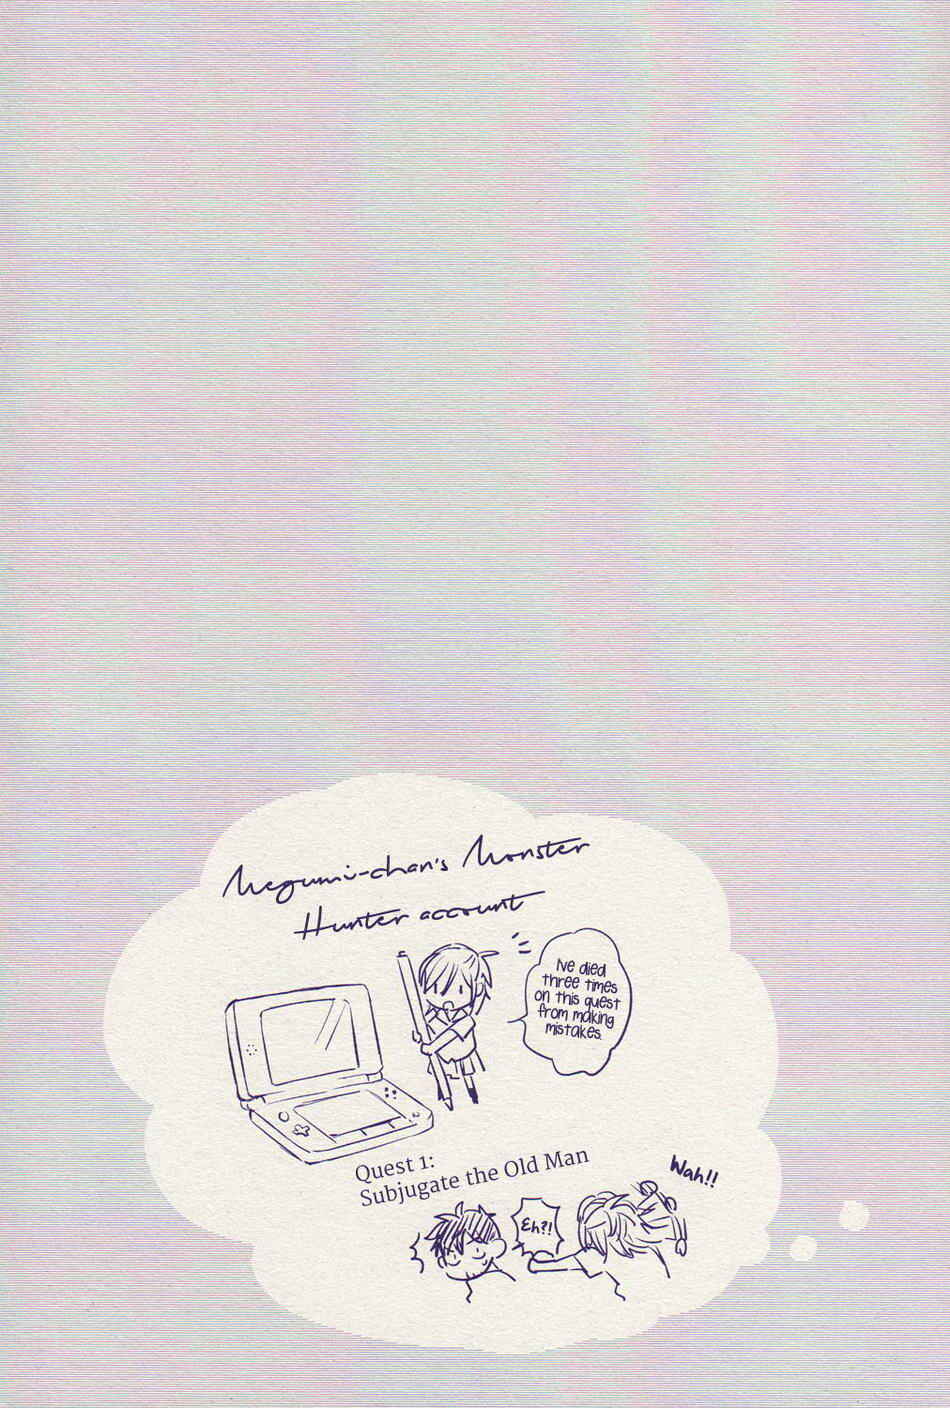 Megumi-chan's Monster
Hunter account
I've died
three times
on this quest
from making
mistakes.
Quest 1:
Subjugate the Old Man
Wah!!
Eh?!